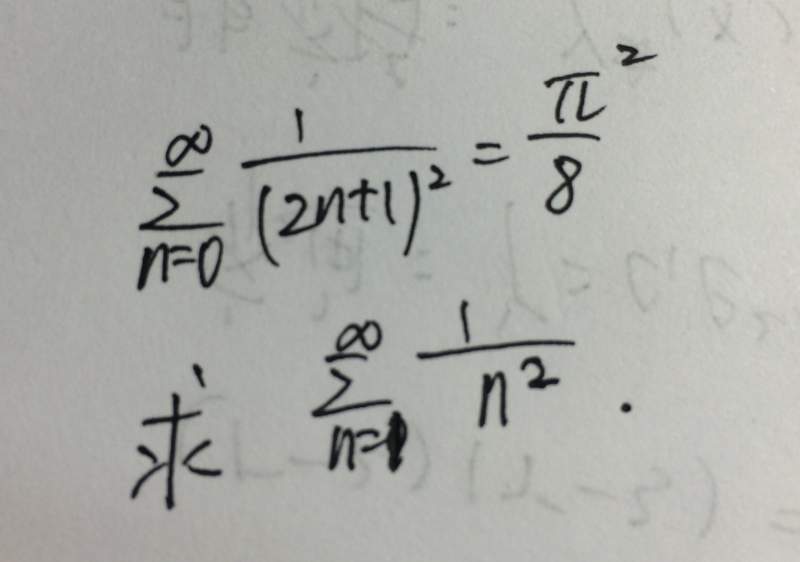 ∑_{n=0}^{∞} 1/(2n+1)² = π²/8
求 ∑_{n=1}^{∞} 1/n² .